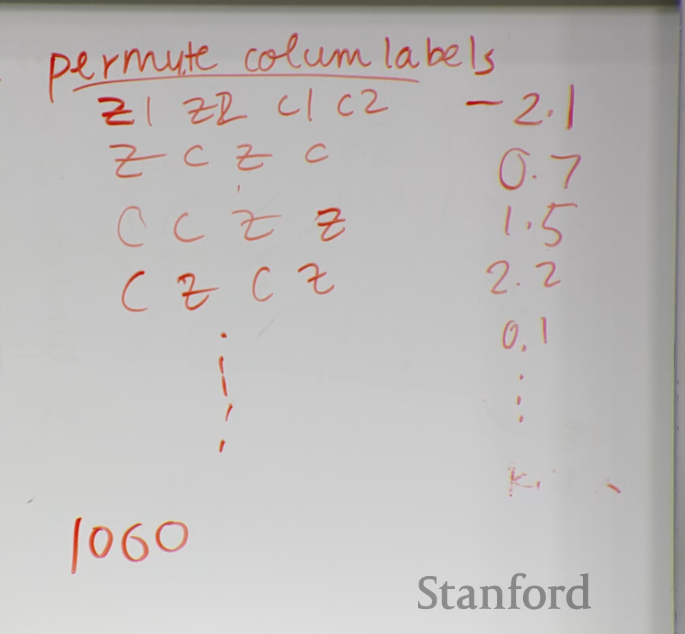 permute colum labels
Z1 Z2 C1 C2 -2.1
Z C Z C 0.7
C C Z Z 1.5
C Z C Z 2.2
0.1
1060
Stanford